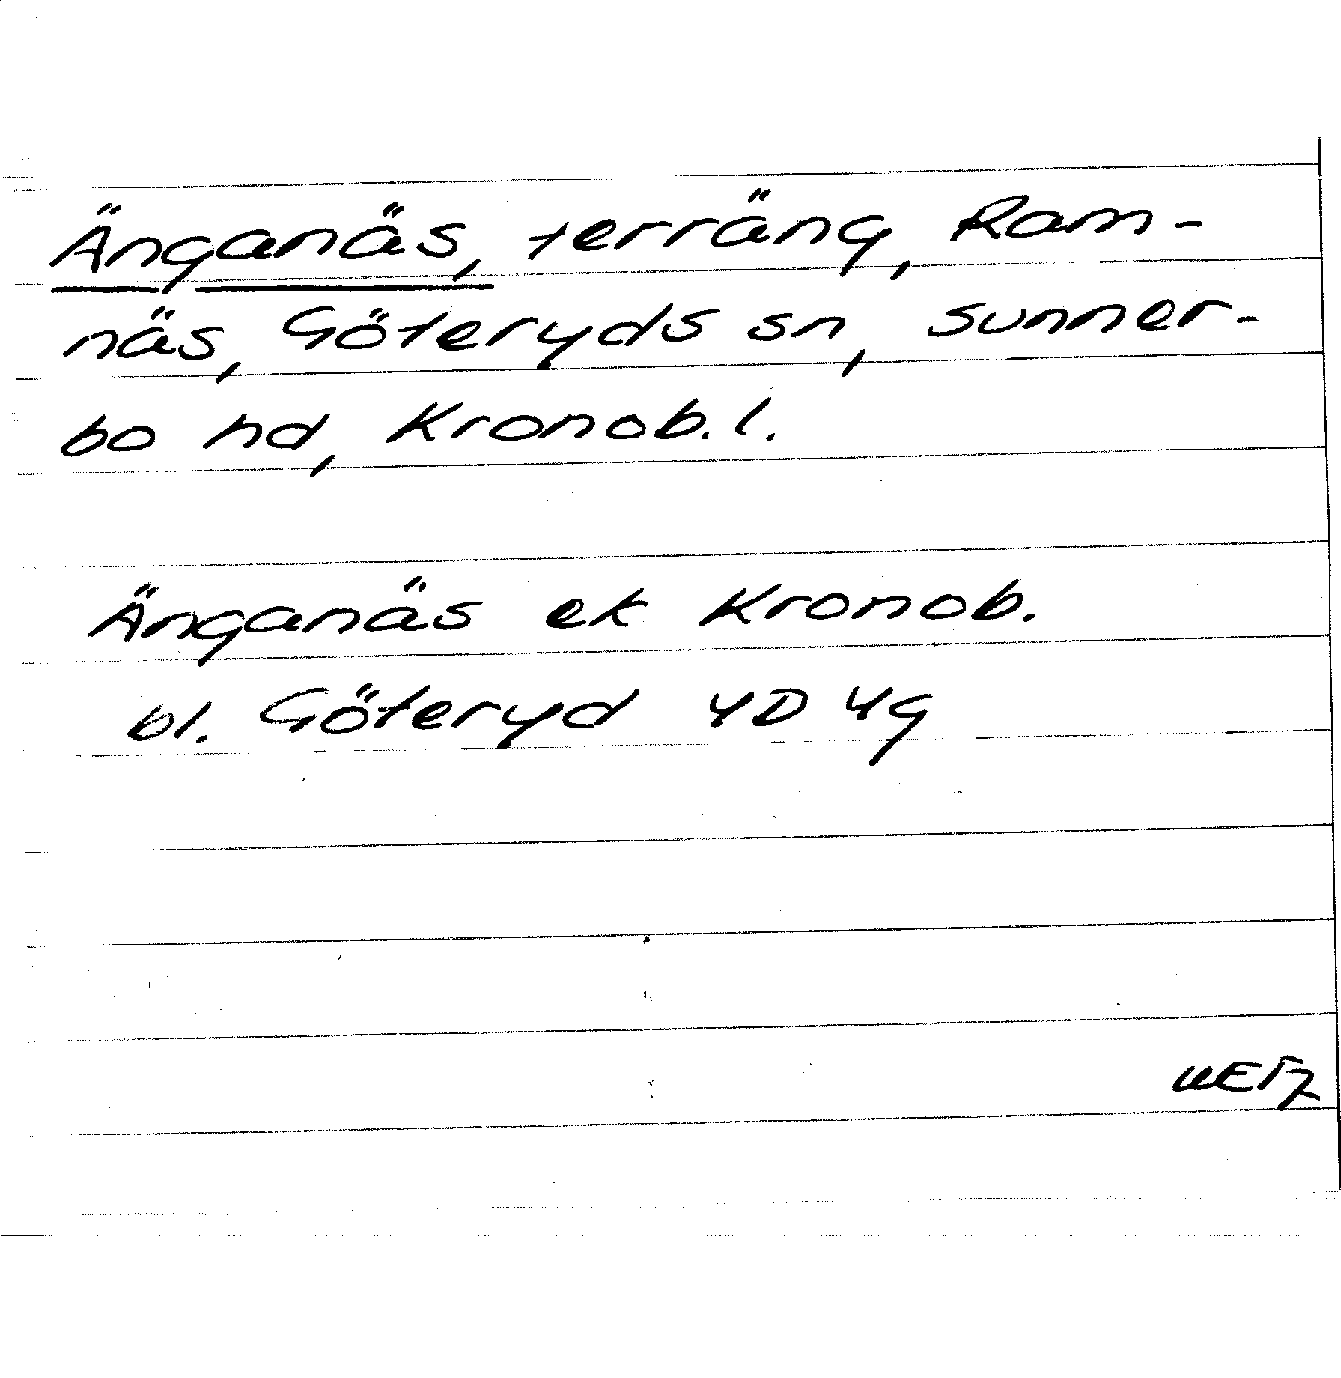 Änganäs, terräng, Ram-
näs, Göteryds sn, Sunner-
bo hd, Kronob. l.
Änganäs ek Kronob.
bl. Göteryd 4D 4g